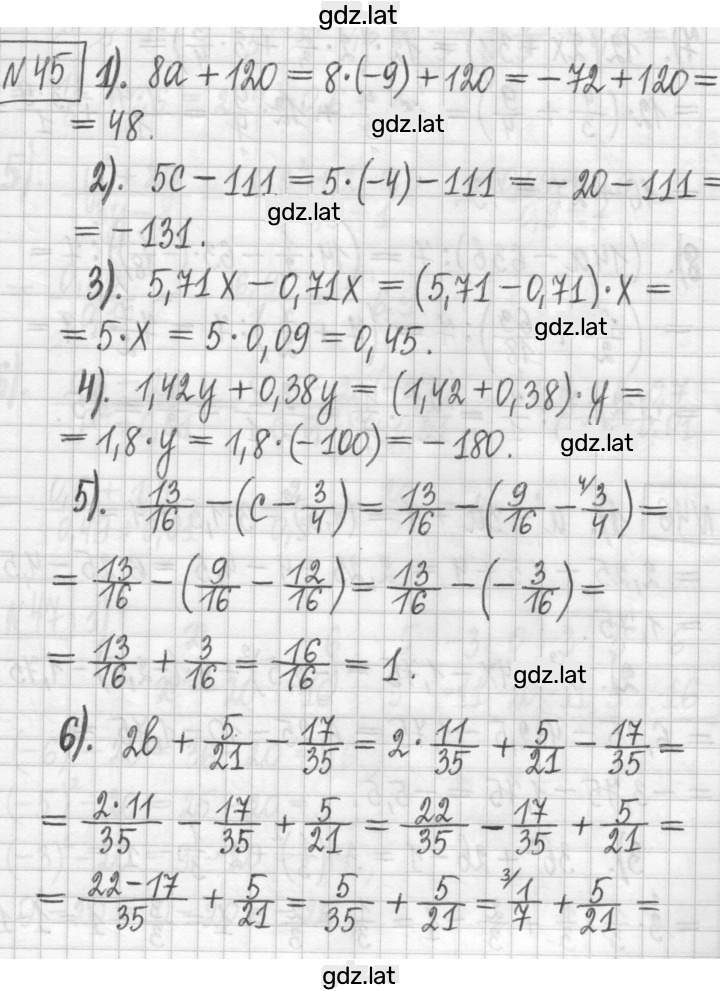 gdz.lat
№45 1). 8a + 120 = 8·(-9) + 120 = -72 + 120 =
= 48.
gdz.lat
2). 5c - 111 = 5·(-4) - 111 = -20 - 111 =
gdz.lat
= -131.
3). 5,71x - 0,71x = (5,71 - 0,71)·x =
gdz.lat
= 5·x = 5·0,09 = 0,45.
4). 1,42y + 0,38y = (1,42 + 0,38)·y =
= 1,8·y = 1,8·(-100) = -180.
gdz.lat
5). 13/16 - (c - 3/4) = 13/16 - (9/16 - 4/ 3/4) =
= 13/16 - (9/16 - 12/16) = 13/16 - (-3/16) =
= 13/16 + 3/16 = 16/16 = 1.
gdz.lat
6). 2b + 5/21 - 17/35 = 2·11/35 + 5/21 - 17/35 =
= 2·11/35 - 17/35 + 5/21 = 22/35 - 17/35 + 5/21 =
= 22-17/35 + 5/21 = 5/35 + 5/21 = 3/ 1/7 + 5/21 =
gdz.lat